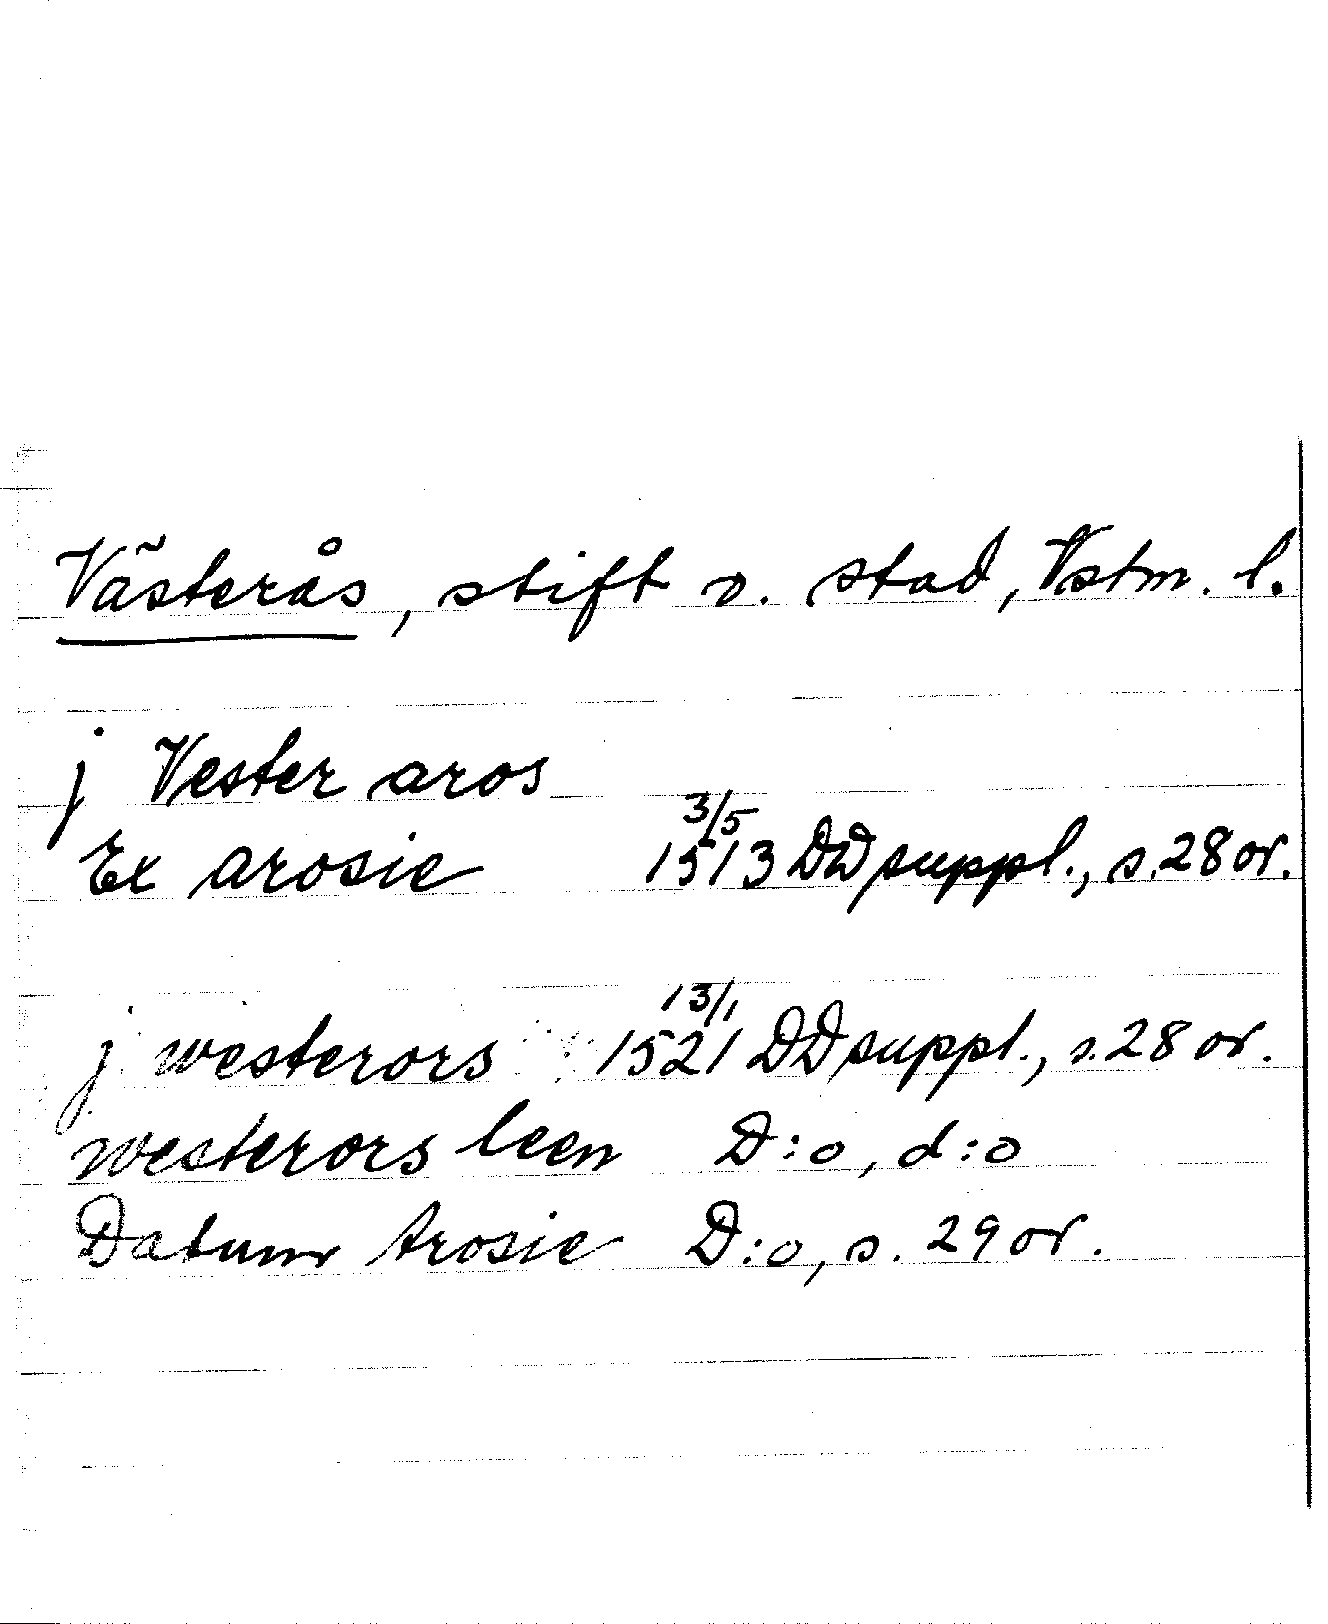 Västerås, stift o. stad, Vstm. l.
j Vester aros
Ex arosie 3/5 1513 DD suppl., s. 28 or.
j westerors 13/1 1521 DD suppl., s. 28 or.
westerors leen D:o, d:o
Datum Arosie D:o, s. 29 or.